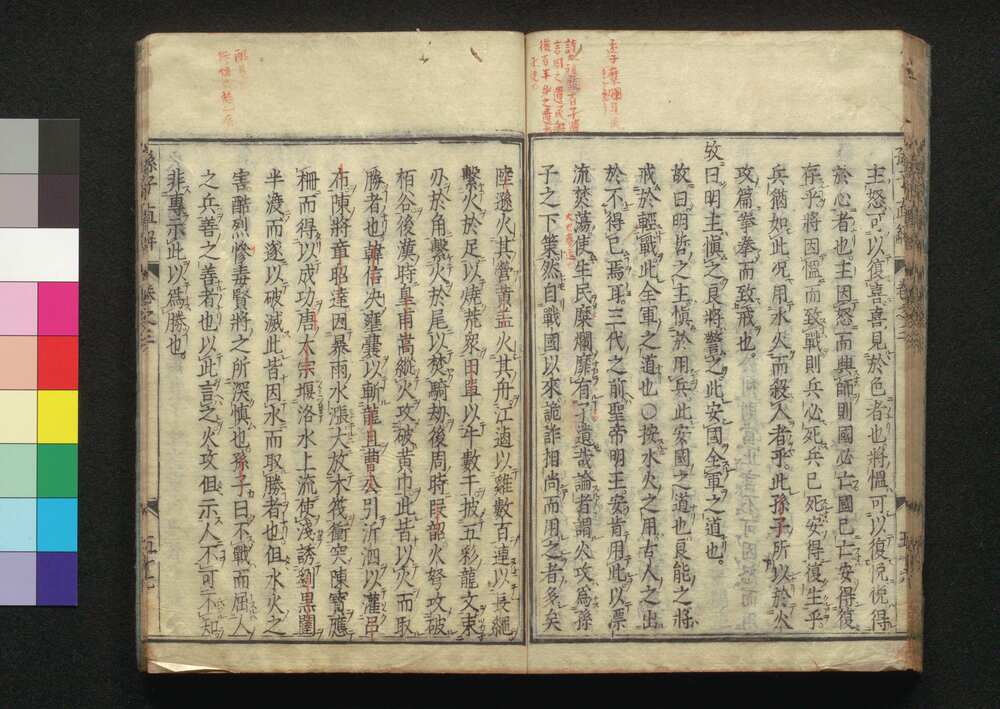 主怒可以復喜喜見於色者也將慍可以復悅悅得
於心者也主因怒而興師則國必亡國已亡安得復
存乎將因慍而致戰則兵必死兵已死安得復生乎
兵猶如此况用水火而殺人者乎此孫子所以於火
攻篇拳拳而致戒也
故曰明主愼之良將警之此安國全軍之道也
故曰明哲之主愼於用兵此安國之道也良能之將
戒於輕戰此全軍之道也〇按水火之用古人之出
於不得已焉耳三代之前聖帝明王安肯用此以漂
流焚蕩使生民糜爛靡有孑遺哉論者謂火攻爲孫
子之下策然自戰國以來詭詐相尚而用之者多矣
陸遜火其營黄盖火其舟江逌以雞數百連以長繩
繫火於足以燒荒衆田單以牛數千披五彩龍文束
刃於角繫火於尾以焚騎劫後周時韓韶火弩攻破
栢谷後漢時皇甫嵩縱火攻破黄巾此皆以火而取
勝者也韓信决壅囊以斬龍且曹公引沂泗以灌吕
布陳將章昭達因暴雨水漲大放木筏衝突陳寳應
柵而得以成功唐太宗堰洛水上流使淺誘劉黒闥
半渡而遂以破滅此皆因水而取勝者也但水火之
害酷烈慘毒賢將之所深愼也孫子曰不戰而屈人
之兵善之善者也以此言之火攻但示人不可不知
非專示此以爲勝也
孫子直解
卷之三
五十七